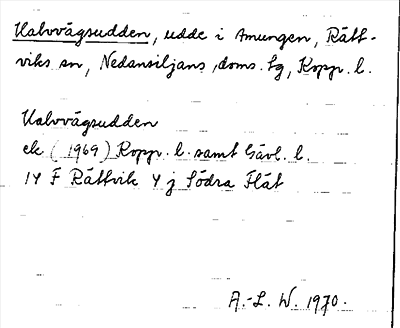 Kalvvågsudden, udde i Amungen, Rätt-
viks sn, Nedansiljans doms. tg, Kopp. l.
Kalvvågsudden
ek (1969) Kopp. l. samt Gävl. l.
14 F Rättvik 4 j Södra Flåt
A.-L. W. 1970.